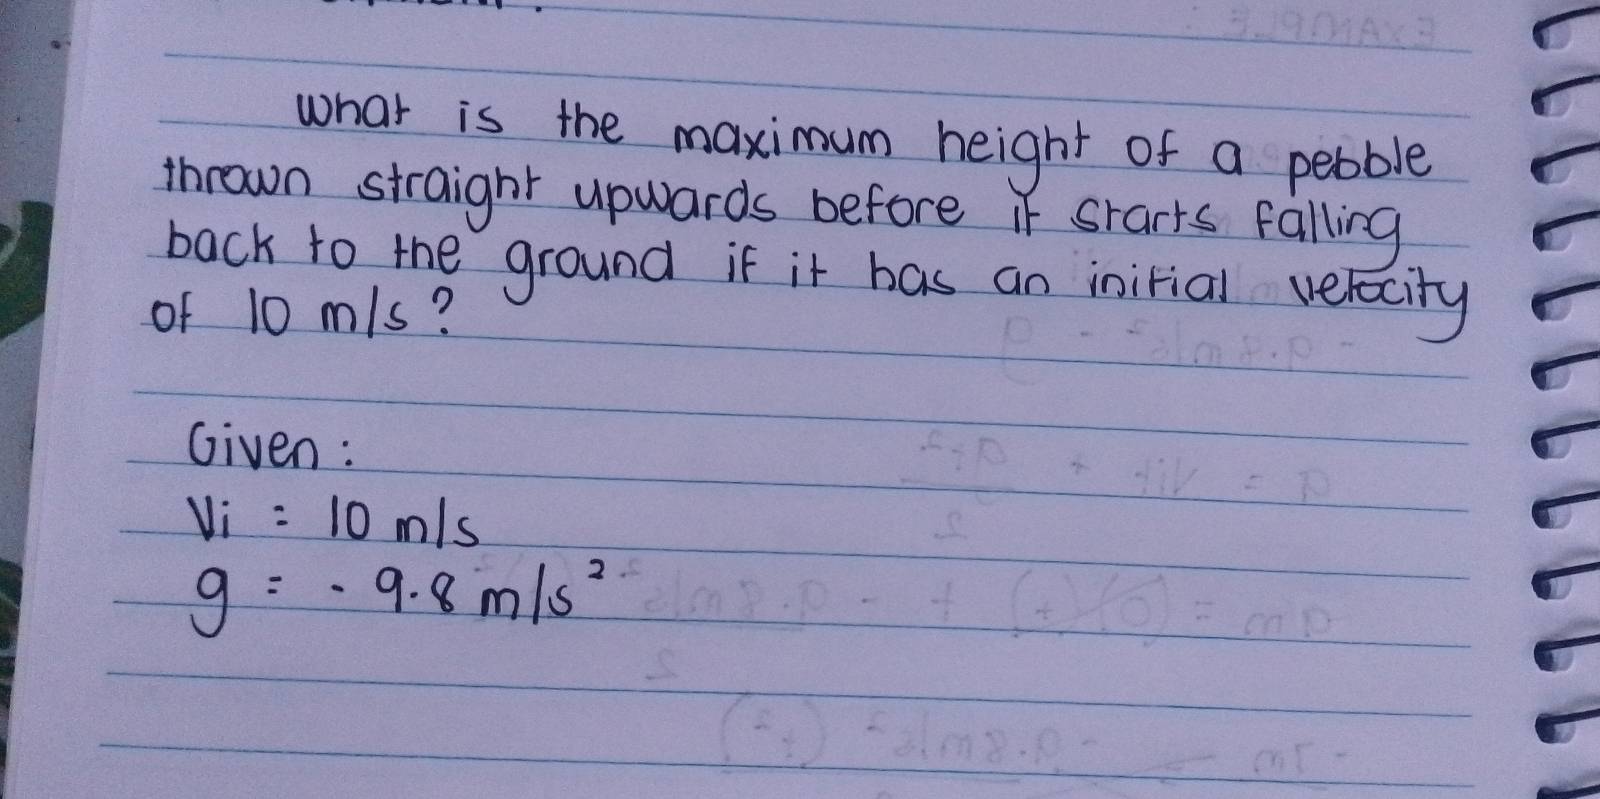 What is the maximum height of a pebble
thrown straight upwards before it starts falling
back to the ground if it has an initial velocity
of 10 m/s?
Given:
Vi = 10 m/s
g = - 9.8 m/s²